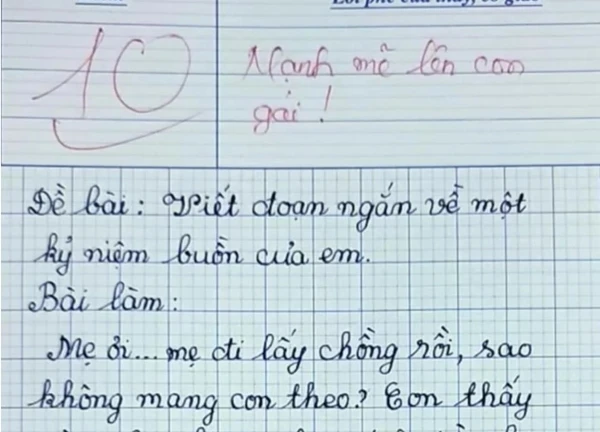 10
Mạnh mẽ lên con
gái!
Đề bài: Viết đoạn ngắn về một
kỷ niệm buồn của em.
Bài làm:
Mẹ ơi... mẹ đi lấy chồng rồi, sao
không mang con theo? Con thấy